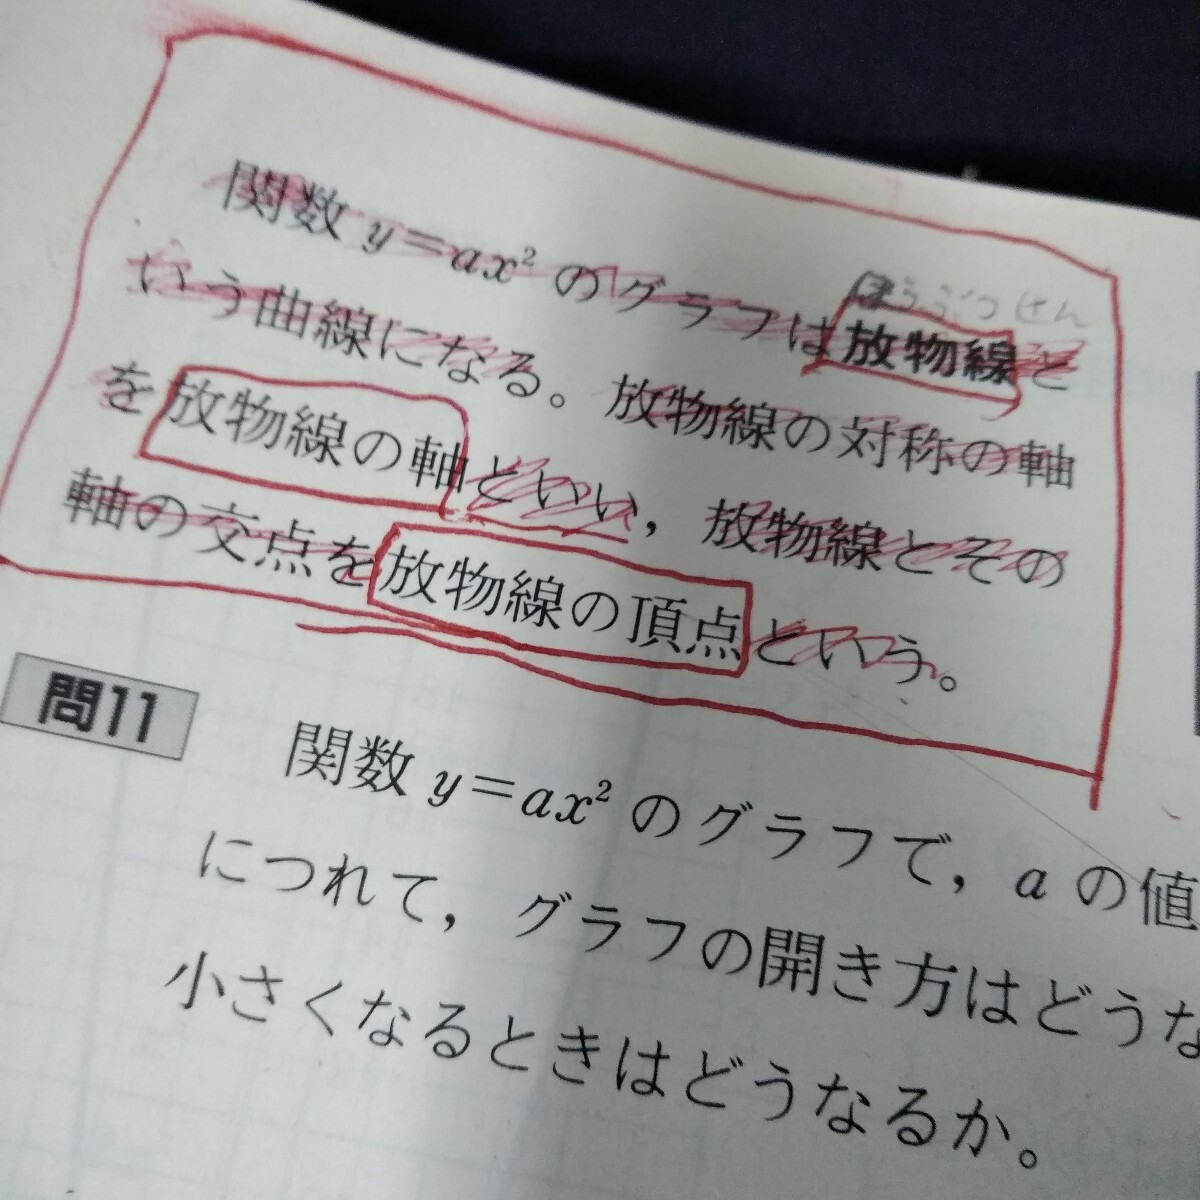 関数 y=ax² のグラフは放物線と
ほうぶつせん
いう曲線になる。放物線の対称の軸
を放物線の軸といい，放物線とその
軸の交点を放物線の頂点という。
問11 関数 y=ax² のグラフで，a の値
につれて，グラフの開き方はどうな
小さくなるときはどうなるか。